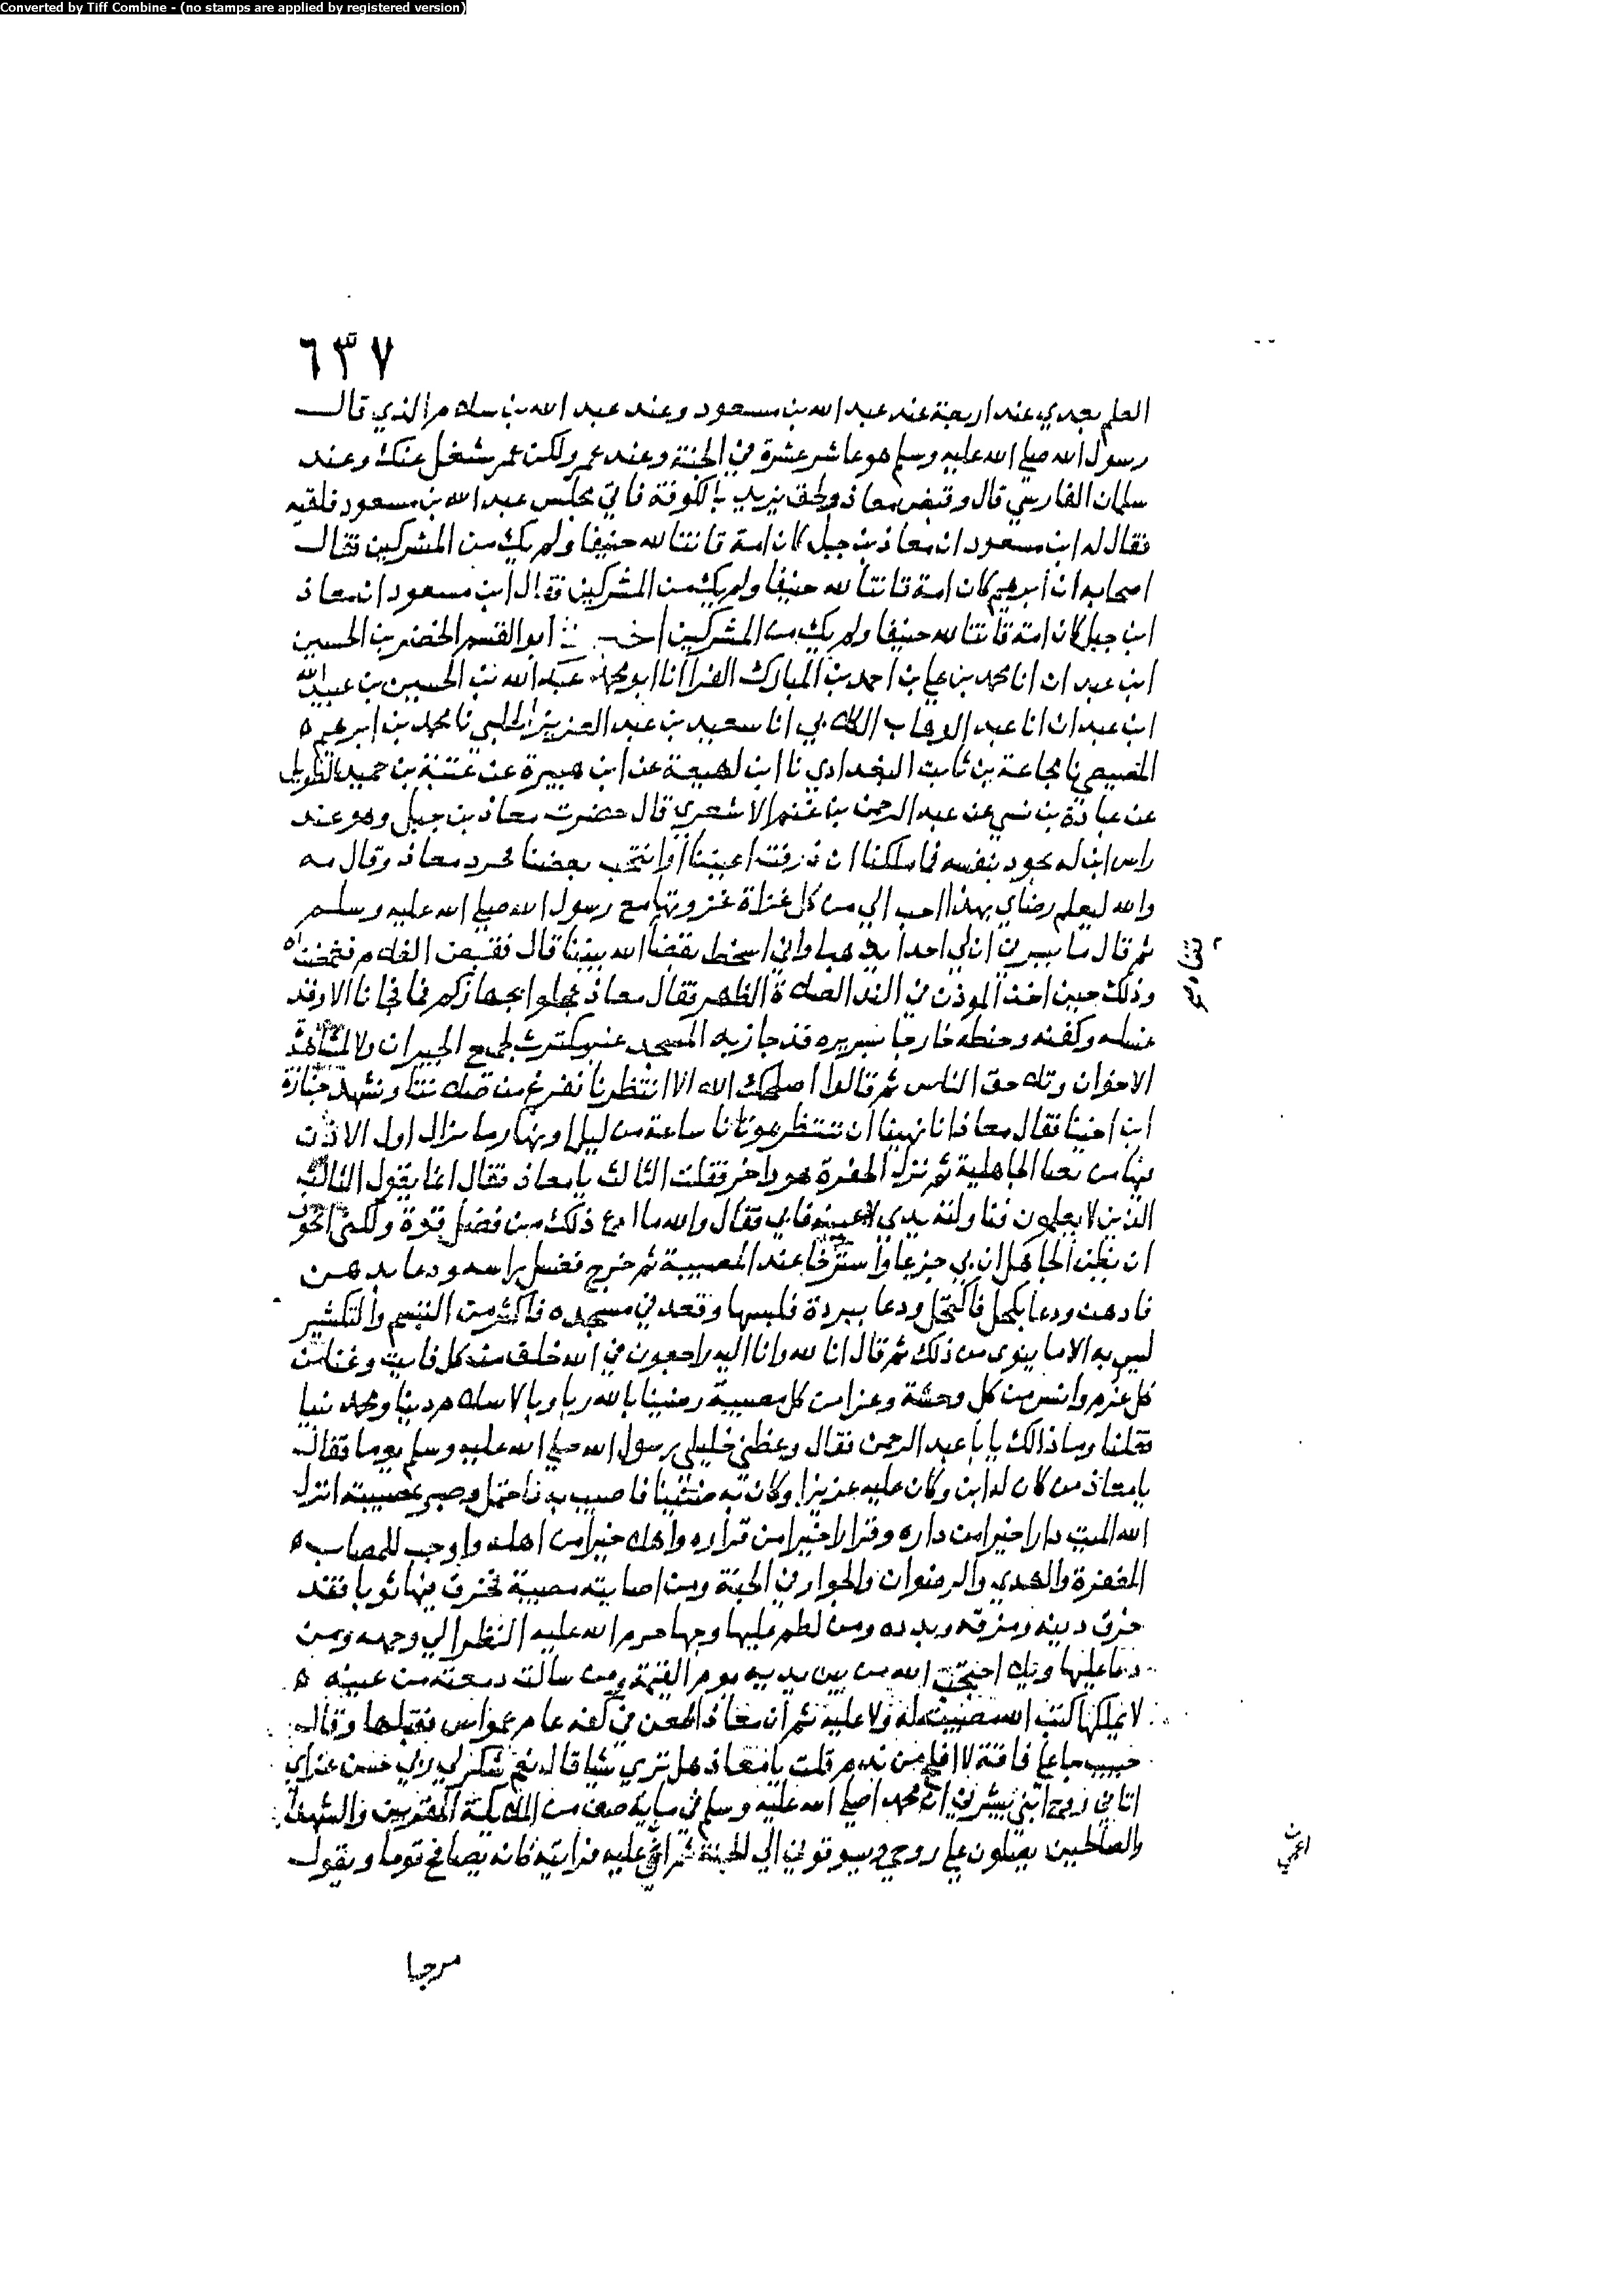 Converted by Tiff Combine - (no stamps are applied by registered version)
٦٣٧
العلم بعدي عند اربعة عند عبد الله بن مسعود وعند عبد الله بن سلام الذي قال
رسول الله صلي الله عليه وسلم هو عاشر عشرة في الجنة وعند عمر ولكن عمر شغل عنك وعند
سلمان الفارسي قال وقبض معاذ ولحق يزيد بالكوفة فاتي مجلس عبد الله بن مسعود فلقيه
فقال له ابن مسعود ان معاذ بن جبل كان امة قانتا لله حنيفا ولم يك من المشركين فقال
اصحابه ان ابرهيم كان امة قانتا لله حنيفا ولم يك من المشركين فقال ابن مسعود ان معاذ
ابن جبل كان امة قانتا لله حنيفا ولم يك من المشركين اخبرنا ابو القسم الخضر بن الحسين
ابن عبدان انا محمد بن علي بن احمد بن المبارك الفرا انا ابو محمد عبد الله بن الحسين بن عبيد الله
ابن عبدان انا عبد الوهاب الكلابي انا سعيد بن عبد العزيز الحلبي نا محمد بن ابرهيم
المصيصي نا مجاعة بن ثابت البغدادي نا ابن لهيعة عن ابن هبيرة عن عتبة بن حميد الطويل
عن عبادة بن نسي عن عبد الرحمن بن غنم الاشعري قال حضرت معاذ بن جبل وهو عند
راس ابن له يجود بنفسه فما ملكنا ان ذرفت اعيننا او انتحب بعضنا فحرد معاذ وقال مه
والله ليعلم رضاي بهذا احب الي من كل غزاة غزوتها مع رسول الله صلي الله عليه وسلم
ثم قال ما يسرني ان لي احدا ذهبا واني اسخط بقضا الله بيننا قال فقبض الغلام فغمضناه
وذلك حين اخذ الموذن في الندا لصلاة الظهر فقال معاذ عجلوا بجهازكم فما فجانا الا وقد
غسله وكفنه وحنطه خارجا بسريره قد جاز به المسجد غير مكترث لجمع الجيران ولا لمشاهدة
الاخوان وتلاحق الناس ثم قالوا اصلحك الله الا انتظرتنا نفرغ من صلاتنا ونشهد جنازة
ابن اخينا فقال معاذ انا نهينا ان ننتظر موتانا ساعة من ليل او نهار وما يزال اول الاذن
فيها من نعا الجاهلية ثم نزل الحفرة هو واخر فقلت الثالث يا معاذ فقال انما يقول الثالث
الذين لا يعلمون فناولته يدي لاعينه فابي فقال والله ما ادع ذلك من فضل قوة ولكني اتخوف
ان يظن الجاهل ان بي جزعا او استرخا عند المصيبة ثم خرج فغسل راسه ودعا بدهن
فادهن ودعا بكحل فاكتحل ودعا ببردة فلبسها وقعد في مسجده فاكثر من التبسم والتكشير
ليس به الا ما ينوي من ذلك ثم قال انا لله وانا اليه راجعون في الله خلف من كل فايت وغنا من
كل عدم وانس من كل وحشة وعزا من كل مصيبة رضينا بالله ربا وبالاسلام دينا ومحمد نبيا
فقلنا وما ذالك يا با عبد الرحمن فقال وعظني خليلي رسول الله صلي الله عليه وسلم يوما فقال
يا معاذ من كان له ابن وكان عليه عزيزا وكان به ضنينا فاصيب به فاحتمل وصبر بمصيبته انزل
الله الميت دارا خيرا من داره وقرارا خيرا من قراره واهلا خيرا من اهله واوجب للمصاب
المغفرة والهدي والرضوان والجوار في الجنة ومن اصابته مصيبة فخرق فيها ثوبا فقد
خرق دينه ومزقه وبدده ومن لطم عليها وجها حرم الله عليه النظر الي وجهه ومن
دعا عليها ويلا احتجب الله من بين يديه يوم القيمة ومن سالت دمعته من عينه
لا يملكها كتب الله مصيبته له ولا عليه ثم ان معاذ اطعن في كفه عام عمواس فقبلها وقال
حبيب جا علي فاقة لا افلح من ندم قلت يا معاذ هل تري شيا قال نعم شكر لي ربي حسن عزاي
اتاني روح ابني يبشرني ان محمدا صلي الله عليه وسلم في ماية صف من الملايكة المقربين والشهدا
والصالحين يصلون علي روحي ويسوقوني الي الجنة ثم اغمي عليه فرايته كانه يصافح قوما ويقول
مرحبا